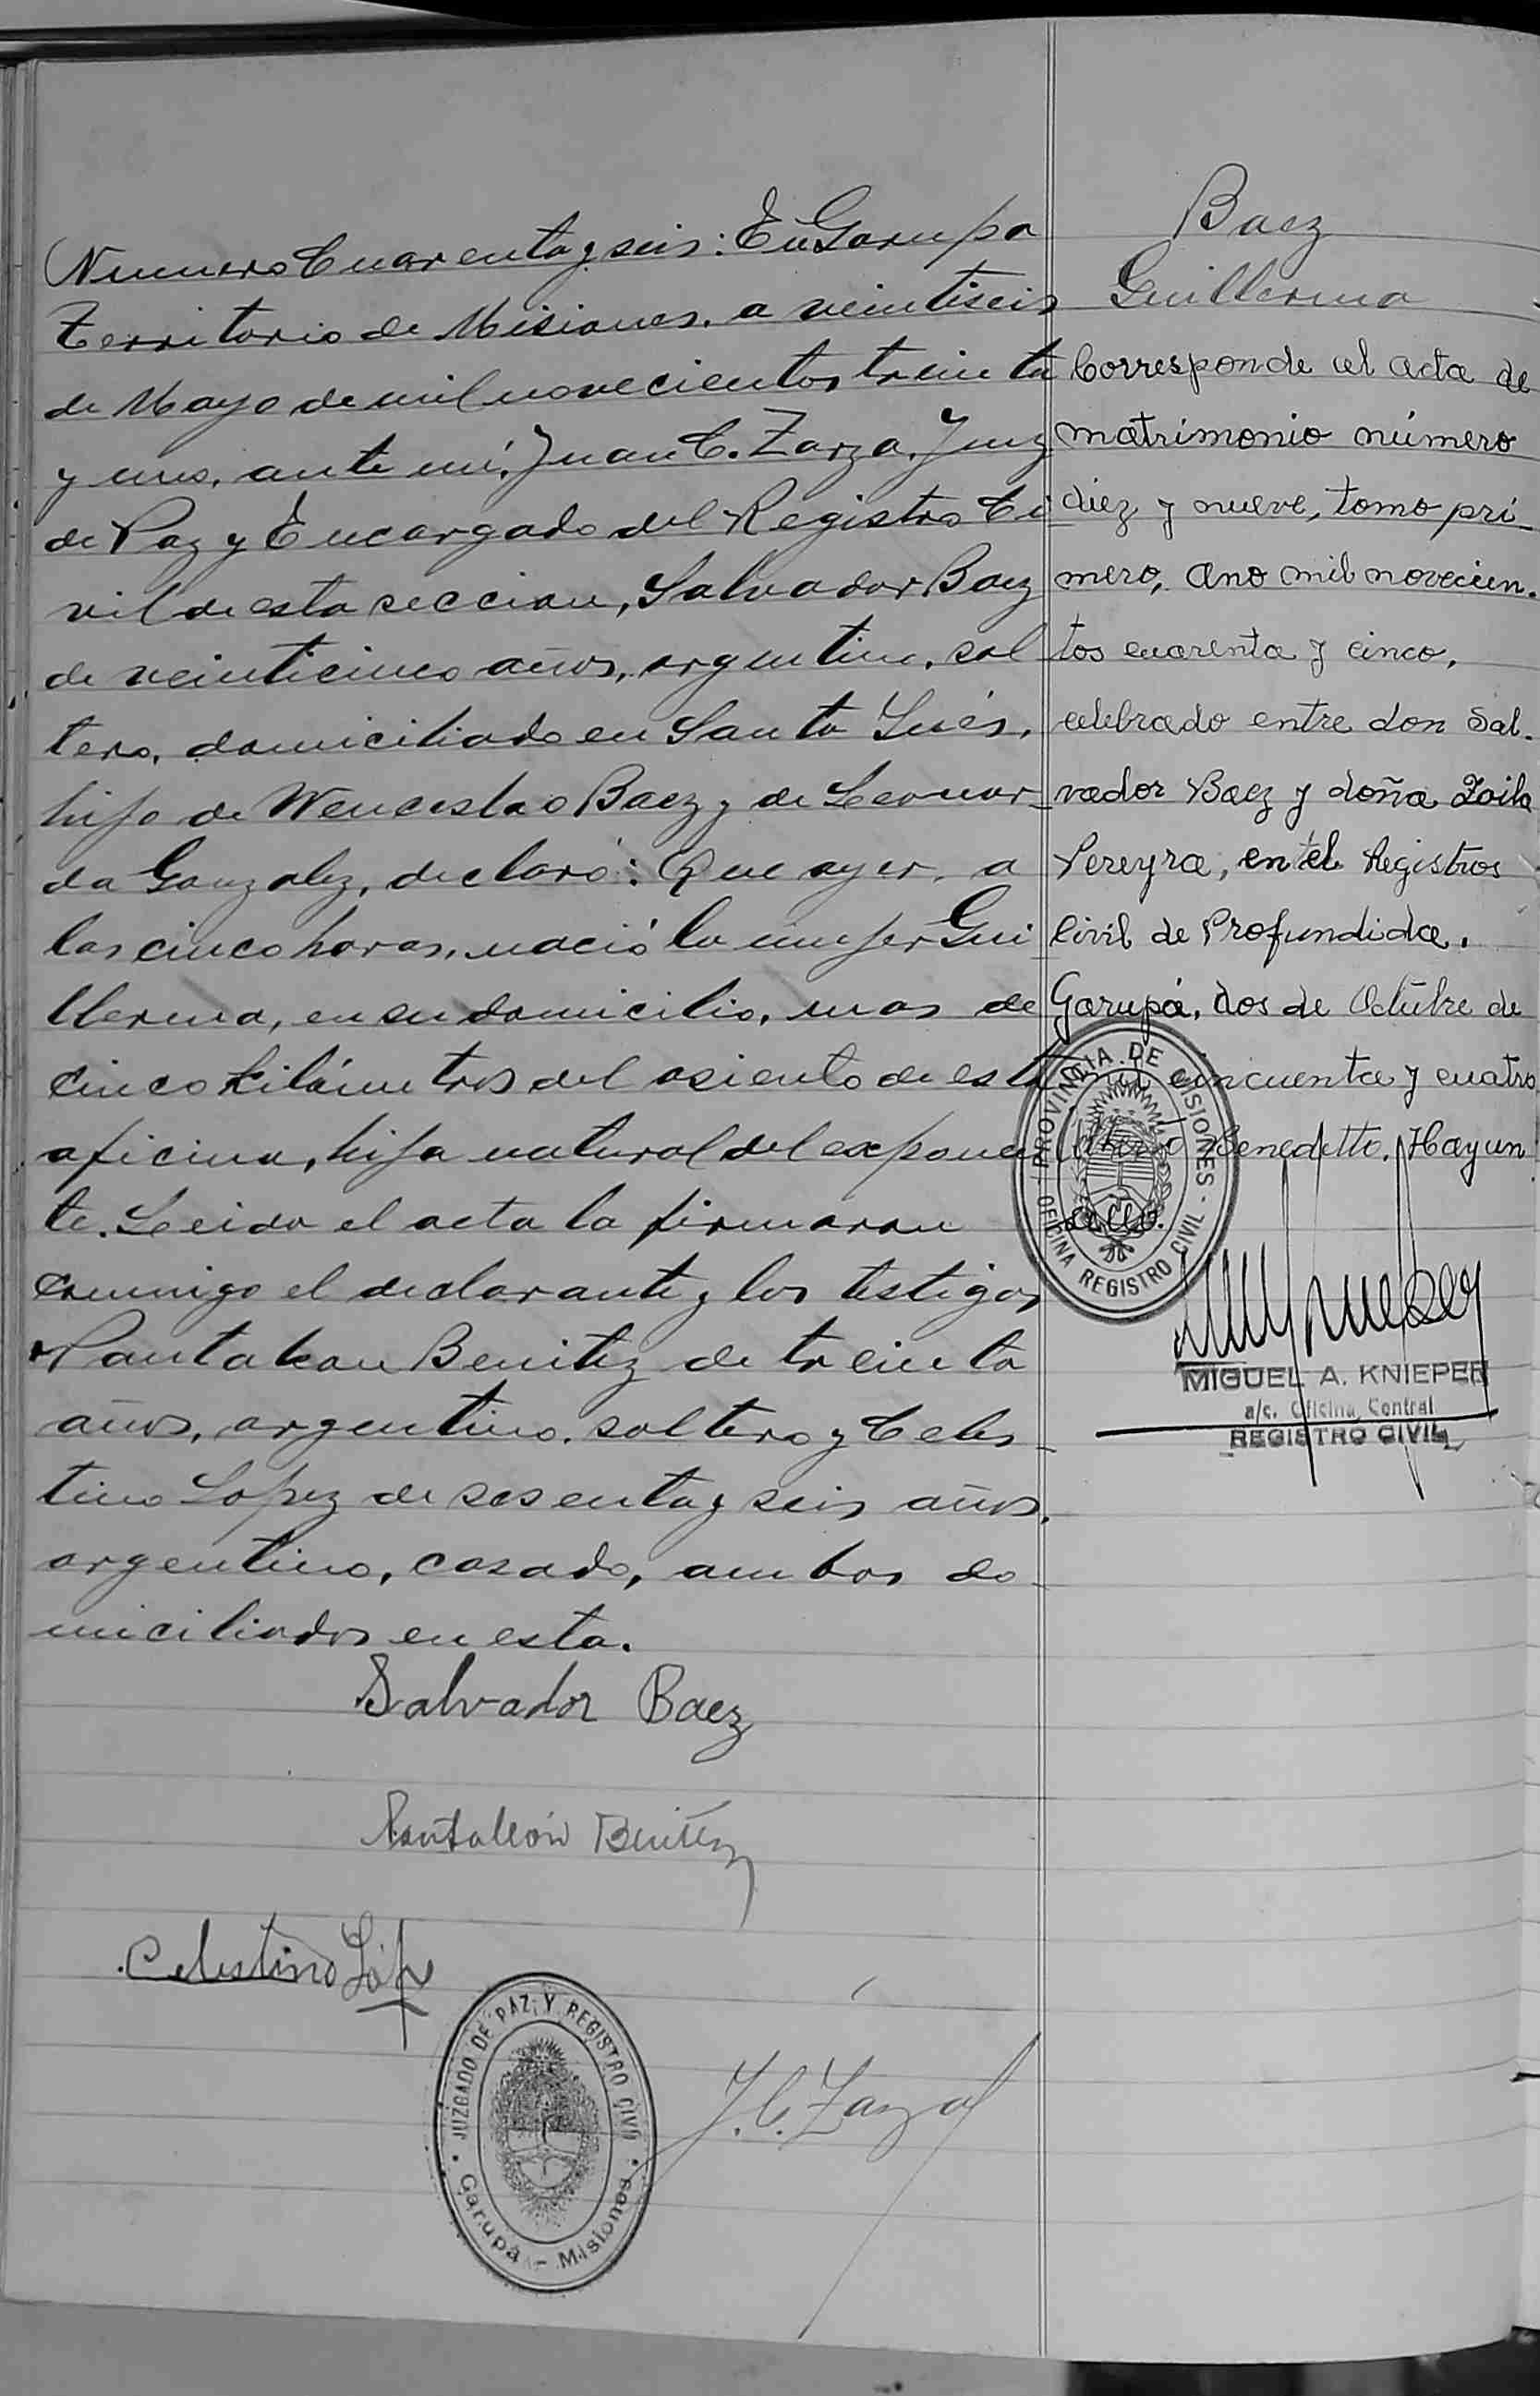 Numero Cuarenta y seis: En Garupa
Territorio de Misiones, a veintiseis
de Mayo de mil novecientos treinta
y uno, ante mi, Juan C. Zarza, Juez
de Paz y Encargado del Registro Ci
vil de esta seccion, Salvador Baez
de veinticinco años, argentino, sol
tero, domiciliado en Santa Inés,
hijo de Wenceslao Baez y de Leonor_
da Gonzalez, declaró: Que ayer, a
las cinco horas, nació la mujer Gui_
llerma, en su domicilio, mas de
cinco kilómetros del asiento de esta
oficina, hija natural del exponen
te. Leida el acta la firmaran
conmigo el declarante y los testigos
Pantaleon Benitez de treinta
años, argentino, soltero y Celes_
tino Lopez de sesenta y seis años,
argentino, casado, ambos do_
miciliados en esta.
Salvador Baez
Pantaleón Benitez
Celestino Lópe
JUZGADO DE PAZ Y REGISTRO CIVIL
Garupá - Misiones
J. C. Zarza
Baez
Guillerma
Corresponde al acta de
matrimonio número
diez y nueve, tomo pri_
mero, ano mil novecien.
tos cuarenta y cinco,
celebrado entre don Sal.
vador Baez y doña Zoila
Pereyra, en el Registros
Civil de Profundida.
Garupá, dos de Octubre de
mil cincuenta y cuatro
Benedetto. Hay un
sello.
PROVINCIA DE MISIONES -
OFICINA REGISTRO CIVIL
MIGUEL A. KNIEPER
a/c. Oficina Central
REGISTRO CIVIL